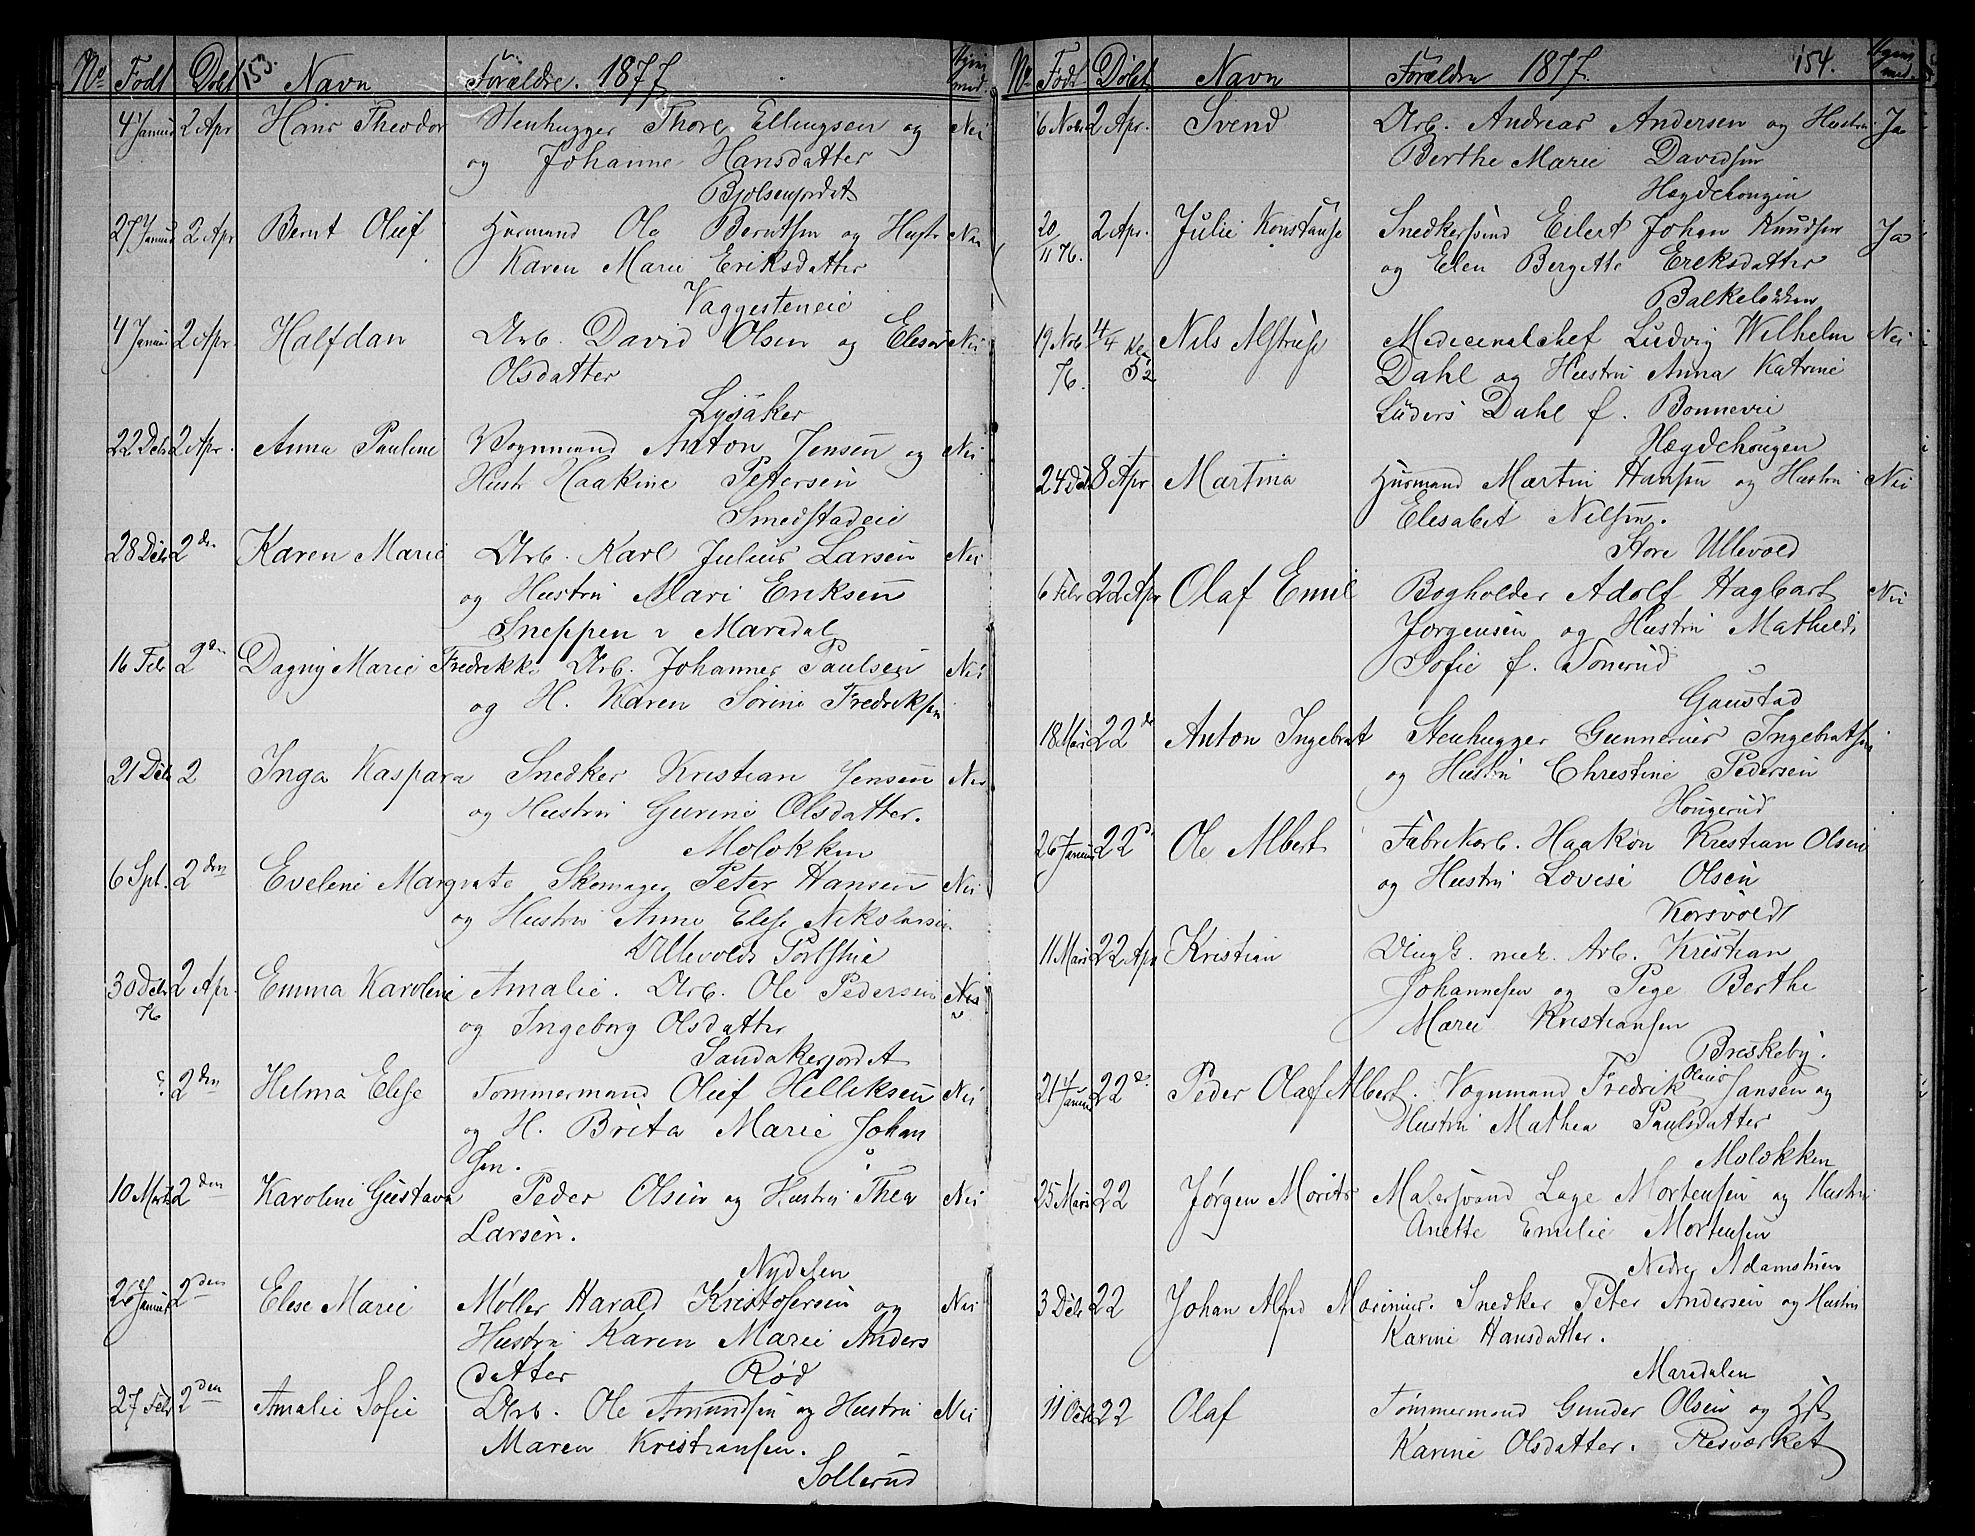 No Født Døbt 153. Navn Forældre. 1877
4 Januar 2 Apr Hans Theodor Stenhugger Thore Ellingsen og Nei
og Johanne Hansdatter
Bjølsenjordet
27 Januar 2 Apr Bernt Oluf Husmand Ole Berntsen og Hustr Nei
Karen Marie Eriksdatter
Vaggesteneie
4 Januar 2 Apr Halfdan Arb. David Olsen og Elesø Nei
Olsdatter
Lysaker
22 Debr 2 Apr. Anna Pauline Vognmand Anton Jensen og Nei
Hustr Haakine Pettersen
Smedstadeie
28 Debr 2den Karen Marie Arb. Karl Julius Larsen Nei
og Hustru Mari Eriksen
Sneppen i Maredal
16 Febr 2den Dagny Marie Fredrekke Arb. Johannes Paulsen Nei
og H. Karen Sørine Fredriksen
21 Debr 2 Inga Kaspara Snedker Kristian Jensen Nei
og Hustru Gurine Olsdatter.
Moløkken
6 Spt. 2den Eveline Margrate Skomager Peter Hansen Nei
og Hustru Anne Elise Nikolaisen
Ullevolds Portstue
30 Debr 2 Apr. Emma Karoline Amalie. Arb. Ole Pedersen Nei
76 og Ingeborg Olsdatter
Sandakerjordet
? 2den Helma Elise Tømmermand Oluf Helliksen Nei
og H. Brita Marie Johan
sen.
10 Marts 2den Karoline Gustava Peder Olsen og Hustru Thea Nei
Larsen.
Nydalen
26 Januar 2den Elese Marie Møller Harald Kristofersen og Nei
Hustru Karen Marie Anders
datter Rød
27 Febr 2den Amalie Sofie Arb. Ole Amundsen og Hustru Nei
Maren Kristiansen.
Sollerud
No Født Døbt Navn Forældre 1877. 154.
6 Nobr 2 Apr. Svend Arb. Andreas Andersen og Hustru Ja
Berthe Marie Davidsen
Hægdehougen
20 2 Apr. Julie Konstanse Snedkersvend Eilert Johan Knudsen Ja
11 76. og Elen Bergitte Ereksdatter
Balkeløkken
19 Nob 4/4 Nils Alstrup Medicenalchef Ludvig Wilhelm Nei
76. 52 Dahl og Hustru Anna Katrine
Lüders Dahl f. Bonnevie
Hægdehougen
24 Debr 8 Apr Martina Husmand Martin Hansen og Hustru Nei
Elesabet Nilsen.
Store Ullevold
6 Febr 22 Apr Olaf Emil Bogholder Adolf Hagbart Nei
Jørgensen og Hustru Mathilde
Sofie f. Tonerud
Gaustad
18 Mars 22de Anton Ingebret Stenhugger Gunnerius Ingebretsen
og Hustru Christine Pedersen
Hougerud
26 Januar 22de Ole Albert Fabrikarb. Haakon Krestian Olsen
og Hustru Lovise Olsen
Korsvold
11 Mars 22 Apr Kristian Ungk. mur. Arb. Kristian
Johannesen og Pige Berthe
Marie Kristiansen
Breskeby.
21 Januar 22de Peder Olaf Albert. Vognmand Fredrik Olaus Jansen og
Hustru Mathea Paulsdatter
Moløkken
25 Mars 22 Jørgen Morits Malersvend Lage Mortensen og Hustru
Anette Emilie Mortensen
Nedre Adamstuen
3 Debr 22 Johan Alfred Marinius. Snedker Peter Andersen og Hustru
Karine Hansdatter.
Maredalen
11 Octb 22 Olaf Tømmermand Gunder Olsen og Hst
Karine Olsdatter. Presværket